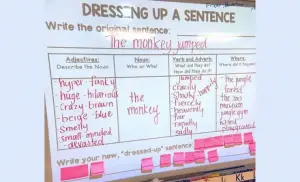 DRESSING UP A SENTENCE
Write the original sentence:
The monkey jumped
Adjectives:
Describe the Noun
Noun:
Who or What
Verb and Adverb:
What did they do?
How did they do it?
Where:
hyper funky
huge hilarious
crazy brown
beige blue
smelly
small minded
the
monkey
jumped
crazily
slowly happily
fiercely
heavenly
far
rapidly
sadly
the jungle
forest
the zoo
museum
jungle gym
island
playground
Write your new, "dressed-up" sentence:
Kk